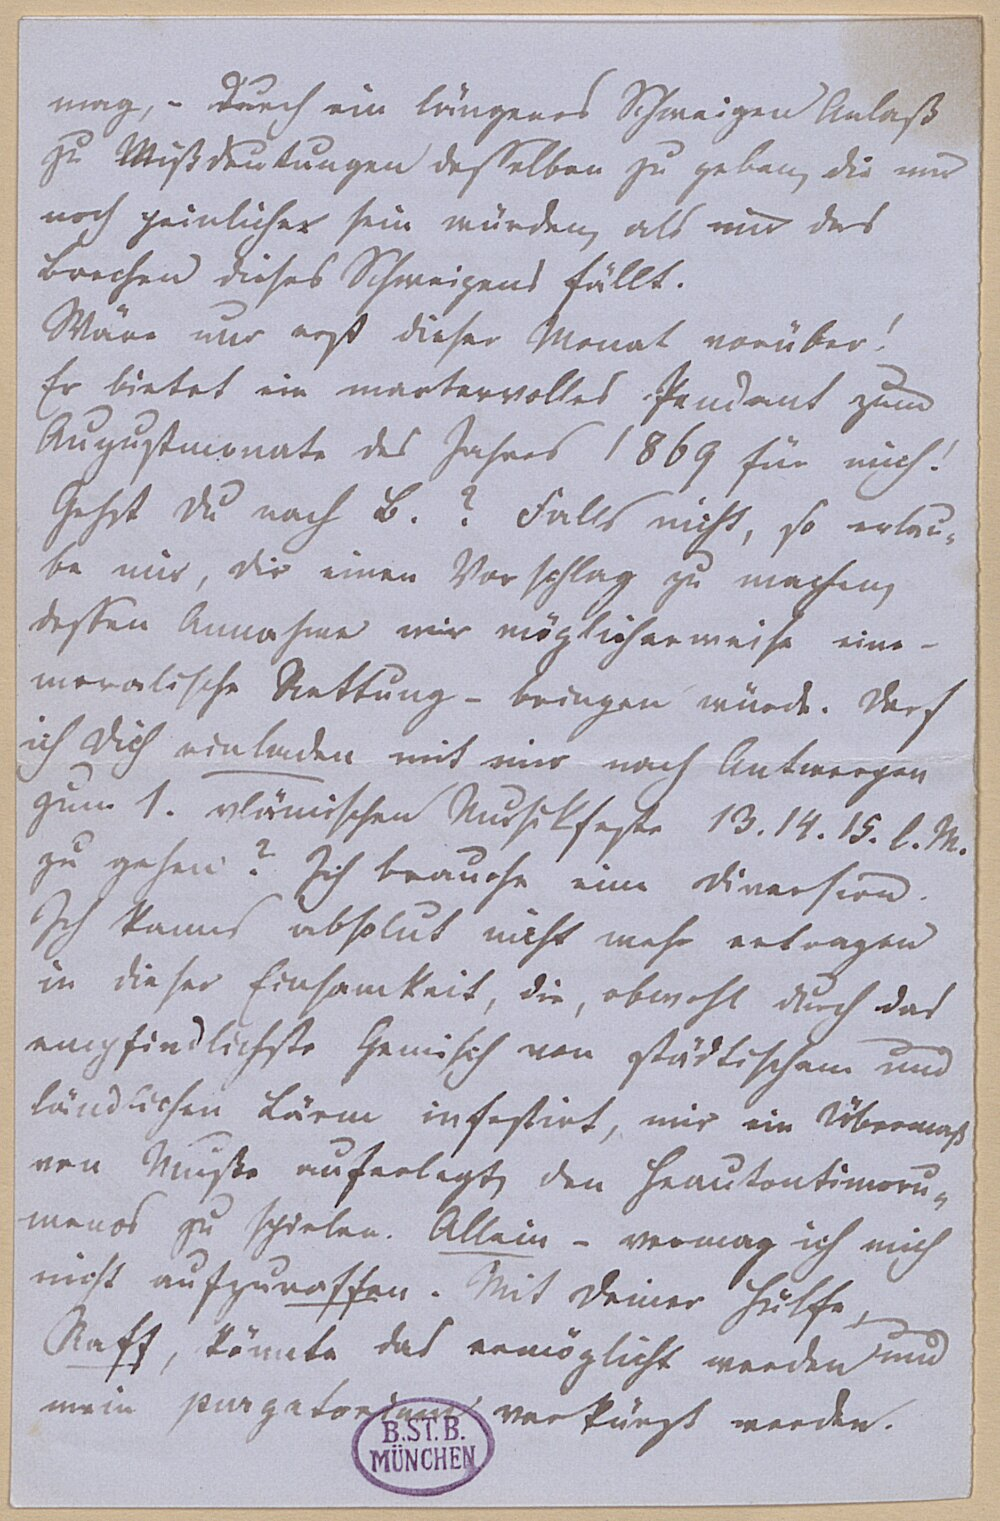 mag, - durch ein längeres Schweigen Anlaß
zu Mißdeutungen desselben zu geben, die mir
noch peinlicher sein würden, als mir das
Brechen dieses Schweigens fällt.
Wäre nur erst dieser Monat vorüber!
Er bietet ein martervolles Pendant zum
Augustmonate des Jahres 1869 für mich!
Gehst Du nach B.? Falls nicht, so erlau-
be mir, dir einen Vorschlag zu machen,
dessen Annahme mir möglicherweise eine -
moralische Rettung - bringen würde. Darf
ich Dich einladen mit mir nach Antwerpen
zum 1. vlämischen Musikfeste 13.14.15. l. M.
zu gehen? Ich brauche eine Diversion.
Ich kanns absolut nicht mehr ertragen
in dieser Einsamkeit, die, obwohl durch das
empfindlichste Gemisch von städtischem und
ländlichen Lärm infestirt, mir ein Übermaß
von Muße auferlegt, den Heautontimoru-
menos zu spielen. Allein - vermag ich mich
nicht aufzuraffen. Mit Deiner Hülfe,
Raff, könnte das ermöglicht werden und
mein purgatorium verkürzt werden.
B.ST.B.
MÜNCHEN